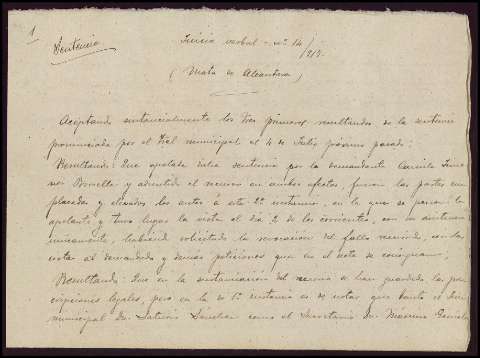 1
Sentencia
Juicio verbal - nº 14/
915.
(Mata de Alcántara)
Aceptando sustancialmente los tres primeros resultandos de la sentencia
pronunciada por el Tral municipal el 4 de Julio próximo pasado;
Resultando: Que apelada dicha sentencia por la demandante
y admitido el recurso en ambos efectos, fueron las partes em
plazadas y elevados los autos á esta 2ª instancia, en la que se personó la
apelante y tuvo lugar la vista el día 2 de los corrientes, con su asistencia
únicamente, habiendo solicitado la revocación del fallo recurrido, con las
costas al demandado y demás peticiones que en el acta se consignan;
Resultando: Que en la sustanciación del recurso se han guardado las pres
cripciones legales, pero en la de 1ª instancia es de notar que tanto el Juez
municipal Dn. Saturio Sánchez como el Secretario Dn. Maximo